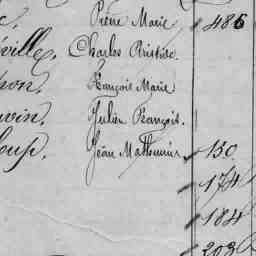 Pierre Marie 486
ville, Charles Aristide.
François Marie
Julien François.
Jean Mathurin 150
174
184
203